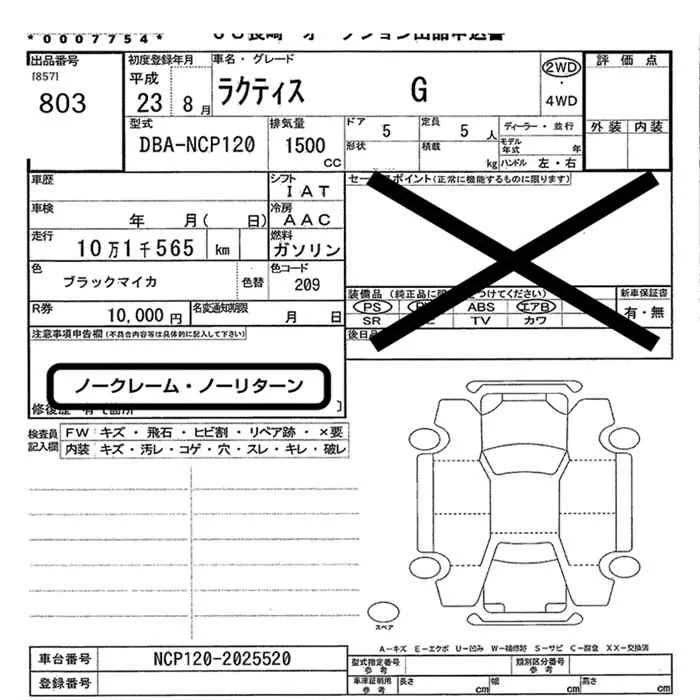 *0007754*
JU長崎 オークション出品申込書
出品番号
[857]
803
初度登録年月
平成
23 8月
車名・グレード
ラクティス G
2WD
・
4WD
評価点
外装 内装
型式
DBA-NCP120
排気量
1500
CC
ドア 5
定員 5人
ディーラー・並行
形状
積載 kg
モデル年式 年
ハンドル 左・右
車歴
シフト
IAT
車検
年 月( 日)
冷房
AAC
走行
10万1千565 km
燃料
ガソリン
色
ブラックマイカ
色替
色コード
209
R券
10,000円
名変通知期限
月 日
セールスポイント(正常に機能するものに限ります)
装備品(純正品に限 つけてください)
PS ABS エアB
SR TV カワ
新車保証書
有・無
後日
注意事項申告欄(不具合内容等は具体的に記入して下さい)
ノークレーム・ノーリターン
修復歴 有 箇所 ]
検査員記入欄
FW キズ・飛石・ヒビ割・リペア跡・×要
内装 キズ・汚レ・コゲ・穴・スレ・キレ・破レ
スペア
A-キズ E-エクボ U-凹み W-補修跡 S-サビ C-腐食 XX-交換済
車台番号 NCP120-2025520
登録番号
型式指定番号
参考
類別区分番号
参考
車庫証明用
参考
長さ cm 幅 cm 高さ cm